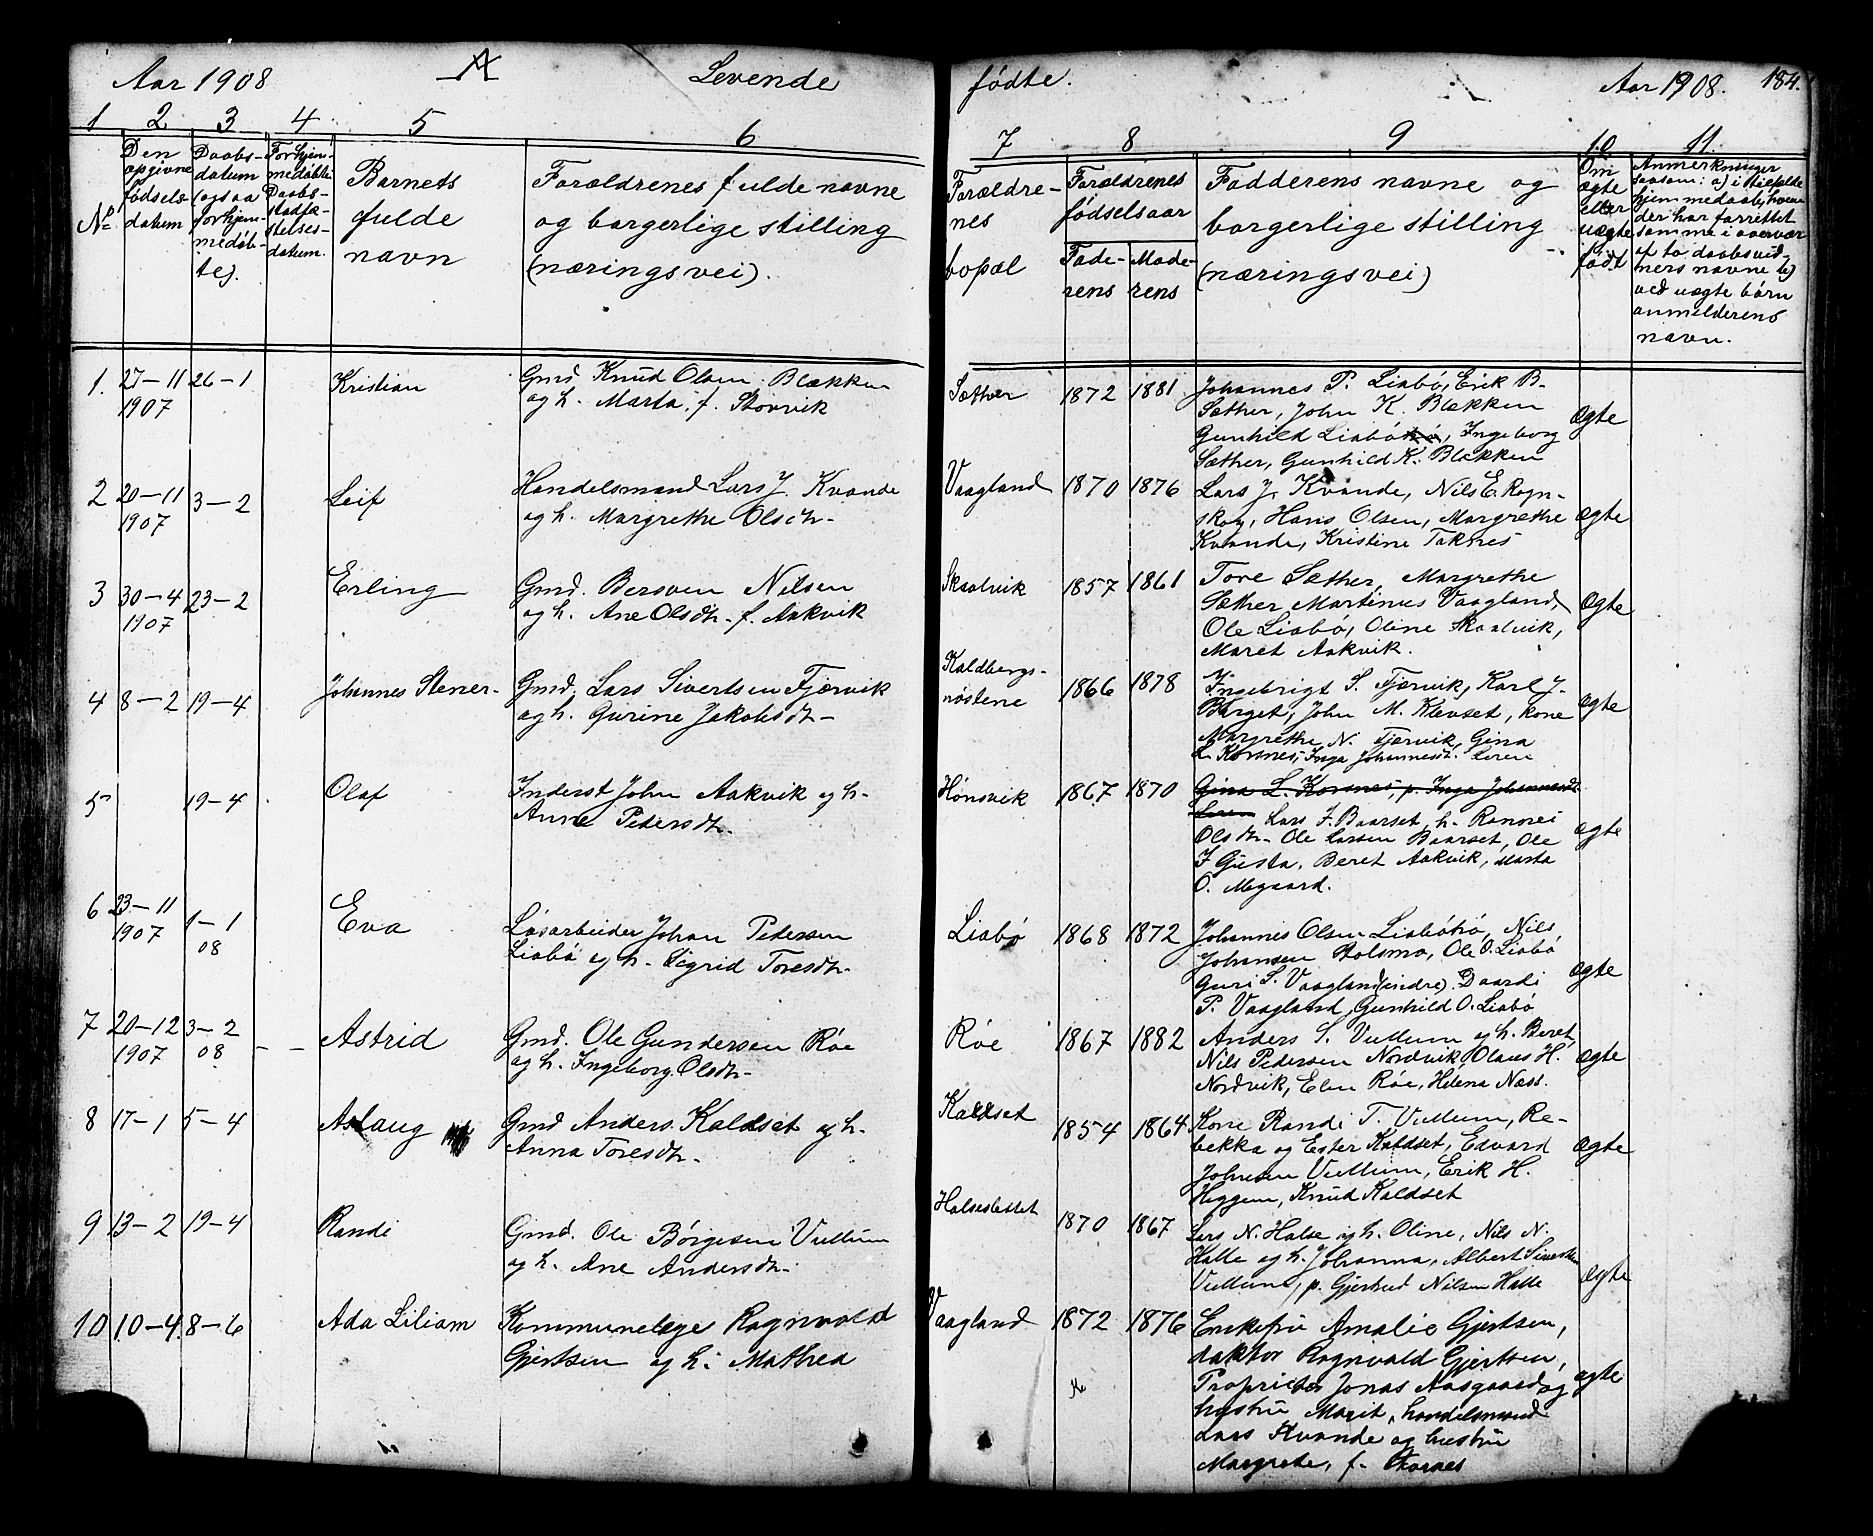 Aar 1908 A Levende
1 2 3 4 5 6
No
Den opgivne fødsels- datum
Daabs- datum (ogsaa forhjem- medøb- te).
For hjem- medøbte Daabs- stadfæ- stelses- datum.
Barnets fulde navn
Forældrenes fulde navne og borgerlige stilling (næringsvei).
1. 27-11 1907 26-1 Kristian
Gmd Knud Olsen Blækken
og h. Marta f. Storvik
2 20-11 1907 3-2 Leif
Handelsmand Lars J. Kvande
og h. Margrethe Olsdtr-
3 30-4 1907 23-2 Erling
Gmd. Bersven Nilsen
og h. Ane Olsdtr- f. Aakvik
4 8-2 19-4 Johannes Stener-
Gmd. Lars Sivertsen Fjærvik
og h. Gurine Jakobsdtr-
5 19-4 Olaf
Inderst John Aakvik og h-
Anne Pedersdtr.
6 23-11 1907 1-1 08 Eva
Løsarbeider Johan Pedersen
Liabø og h- Sigrid Toresdtr-
7 20-12 1907 3-2 08 Astrid
Gmd. Ole Gundersen Røe
og h. Ingeborg Olsdtr-
8 17-1 5-4 Aslaug
Gmd Anders Kaldset og h-
Anna Toresdtr-
9 13-2 19-4 Randi
Gmd. Ole Børgesen Vullum
og h. Ane Andersdtr-
10 10-4 8-6 Ada Liliam
Kommunelæge Ragnvald
Gjertsen og h: Mathea
fødte. Aar 1908. 184.
7 8 9 10 11.
Forældre- nes bopæl
Forældrenes fødselsaar
Fade- rens
Mode- rens
Fadderens navne og borgerlige stilling (næringsvei)
Om ægte eller uægte født
Anmerkninger
saasom: a) i tilfælde
hjemmedaab, hvem
der har forrettet
samme i overvær
af to daabsvid-
ners navne b)
ved uægte børn
anmelderens
navn.
Sæther 1872 1881 Johannes P. Liabø, Erik B-
Sæther, John K. Blækken
Gunhild Liabø, Ingeborg
Sæther, Gunhild K. Blækken
ægte
Vaagland 1870 1876 Lars J. Kvande, Nils E. Rogn-
skog, Hans Olsen, Margrethe
Kvande, Kristine Taknes
ægte
Skaalvik 1857 1861 Tore Sæther, Margrethe
Sæther Martinus Vaagland,
Ole Liabø, Oline Skaalvik,
Maret Aakvik.
ægte
Kaldbergs-
nøstene 1866 1878 Ingebrigt S. Fjærvik, Karl J.
Berget, John M. Klevset, kone
Margrethe N. Fjærvik, Gina
L. Korsnes, Inga Johannesdt. Leren
ægte
Hønsvik 1867 1870 Gina L. Korsnes, p. Inga Johannesdt
Leren Lars J. Baarset, h. Rannei
Olsdtr- Ole Larsen Baarset, Ole
J Gusta, Beret Aakvik, Marta
O. Megaard.
ægte
Liabø 1868 1872 Johannes Olsen Liabøhø, Nils
Johansen Holsmo, Ole O. Liabø
Guri S. Vaagland (indre). Daardi
P. Vaagland, Gunhild O. Liabø
ægte
Røe 1867 1882 Anders S. Vullum og h. Beret,
Nils Pedersen Nordvik, Olaus H.
Nordvik, Elen Røe, Helena Næss.
ægte
Kaldset 1854 1864 Kone Randi T. Vullum, Re-
bekka og Ester Kaldset, Edvard
Johnsen Vullum, Erik H.
Heggem, Knud Kaldset
ægte
Halseslettet 1870 1867 Lars N. Halse og h. Oline, Nils N.
Halle og h. Johanna, Albert Sivertsen
Vullum, p. Gjertrud Nilsen Halle
ægte
Vaagland 1872 1876 Enkefru Amalie Gjertsen,
doktor Ragnvald Gjertsen,
Proprietær Jonas Aasgaard og
hustru Marit, handelsmand
Lars Kvande og hustru
Margrete, f. Stornes
ægte